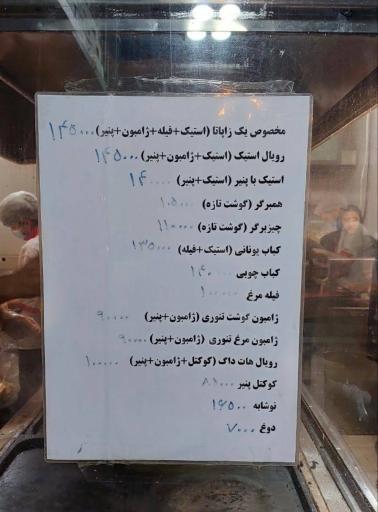 مخصوص یک زاپاتا (استیک+فیله+ژامبون+پنیر) ۱۴۵۰۰۰
رویال استیک (استیک+ژامبون+پنیر) ۱۴۵۰۰۰
استیک با پنیر (استیک+پنیر) ۱۴۰۰۰۰
همبرگر (گوشت تازه) ۱۰۵۰۰۰
چیزبرگر (گوشت تازه) ۱۱۰۰۰۰
کباب یونانی (استیک+فیله) ۱۳۵۰۰۰
کباب چوبی ۱۴۰۰۰۰
فیله مرغ
ژامبون گوشت تنوری (ژامبون+پنیر) ۹۰۰۰۰
ژامبون مرغ تنوری (ژامبون+پنیر) ۹۰۰۰۰
رویال هات داگ (کوکتل+ژامبون+پنیر) ۱۰۰۰۰۰
کوکتل پنیر
نوشابه ۱۶۵۰۰
دوغ ۷۰۰۰